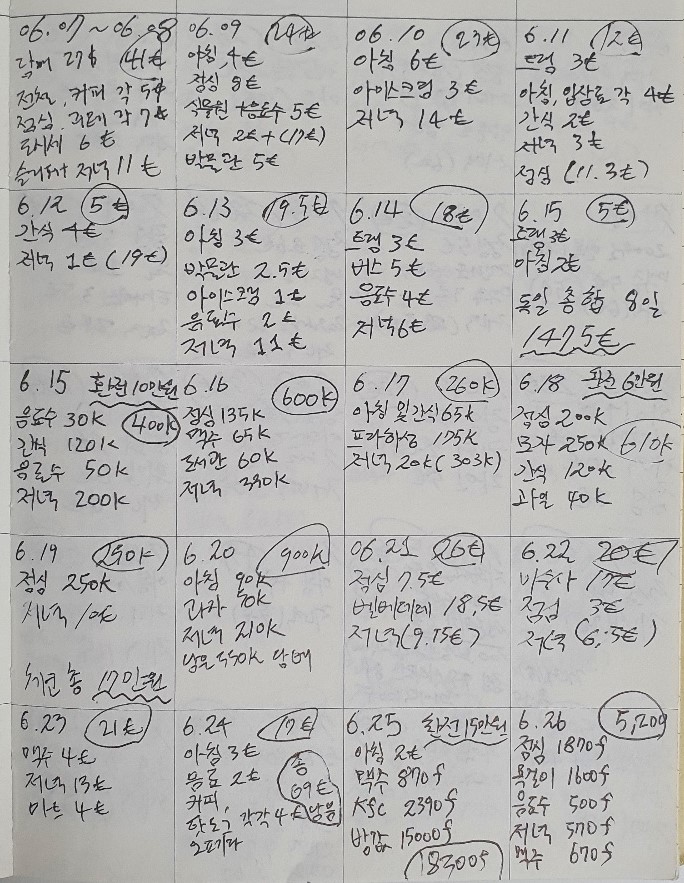 06.07 ~ 06.08
담배 27$ 41€
커피 각 5€
점심, 각 7€
6 €
저녁 11 €
06.09 24€
아침 4€
점심 8€
식물원 음료수 5€
저녁 2€ + (17€)
박물관 5€
06.10 23€
아침 6€
아이스크림 3€
저녁 14€
6.11 12€
트램 3€
아침, 입장료 각 4€
간식 2€
저녁 3€
점심 (11.3€)
6.12 5€
간식 4€
저녁 1€ (19€)
6.13 19.5€
아침 3€
박물관 2.5€
아이스크림 1€
음료수 2€
저녁 11€
6.14 18€
트램 3€
버스 5€
음료수 4€
저녁 6€
6.15 5€
트램 3€
아침 2€
독일 총합 8일
147.5€
6.15 환전 10만원
음료수 30k 400k
간식 120k
음료수 50k
저녁 200k
6.16 600k
점심 135k
맥주 65k
도서관 60k
저녁 330k
6.17 260k
아침 및 간식 65k
프라하성 175k
저녁 20k (303k)
6.18 환전 6만원
점심 200k
모자 250k 610k
간식 120k
과일 40k
6.19 250k
점심 250k
저녁 10€
체코 총 17만원
6.20 900k
아침 90k
과자 50k
저녁 210k
남은 550k 담배
06.21 26€
점심 7.5€
벨베데레 18.5€
저녁 (9.75€)
6.22 20€
미술사 17€
점심 3€
저녁 (6.5€)
6.23 21€
맥주 4€
저녁 13€
마트 4€
6.24 17€
아침 3€
음료 2€
커피,
핫도그 각각 4€
총
69€
남음
6.25 환전 15만원
아침 2€
맥주 870f
KFC 2390f
방값 15000f
18300f
6.26 5,200
점심 1870f
목걸이 1600f
음료수 500f
저녁 570f
맥주 670f